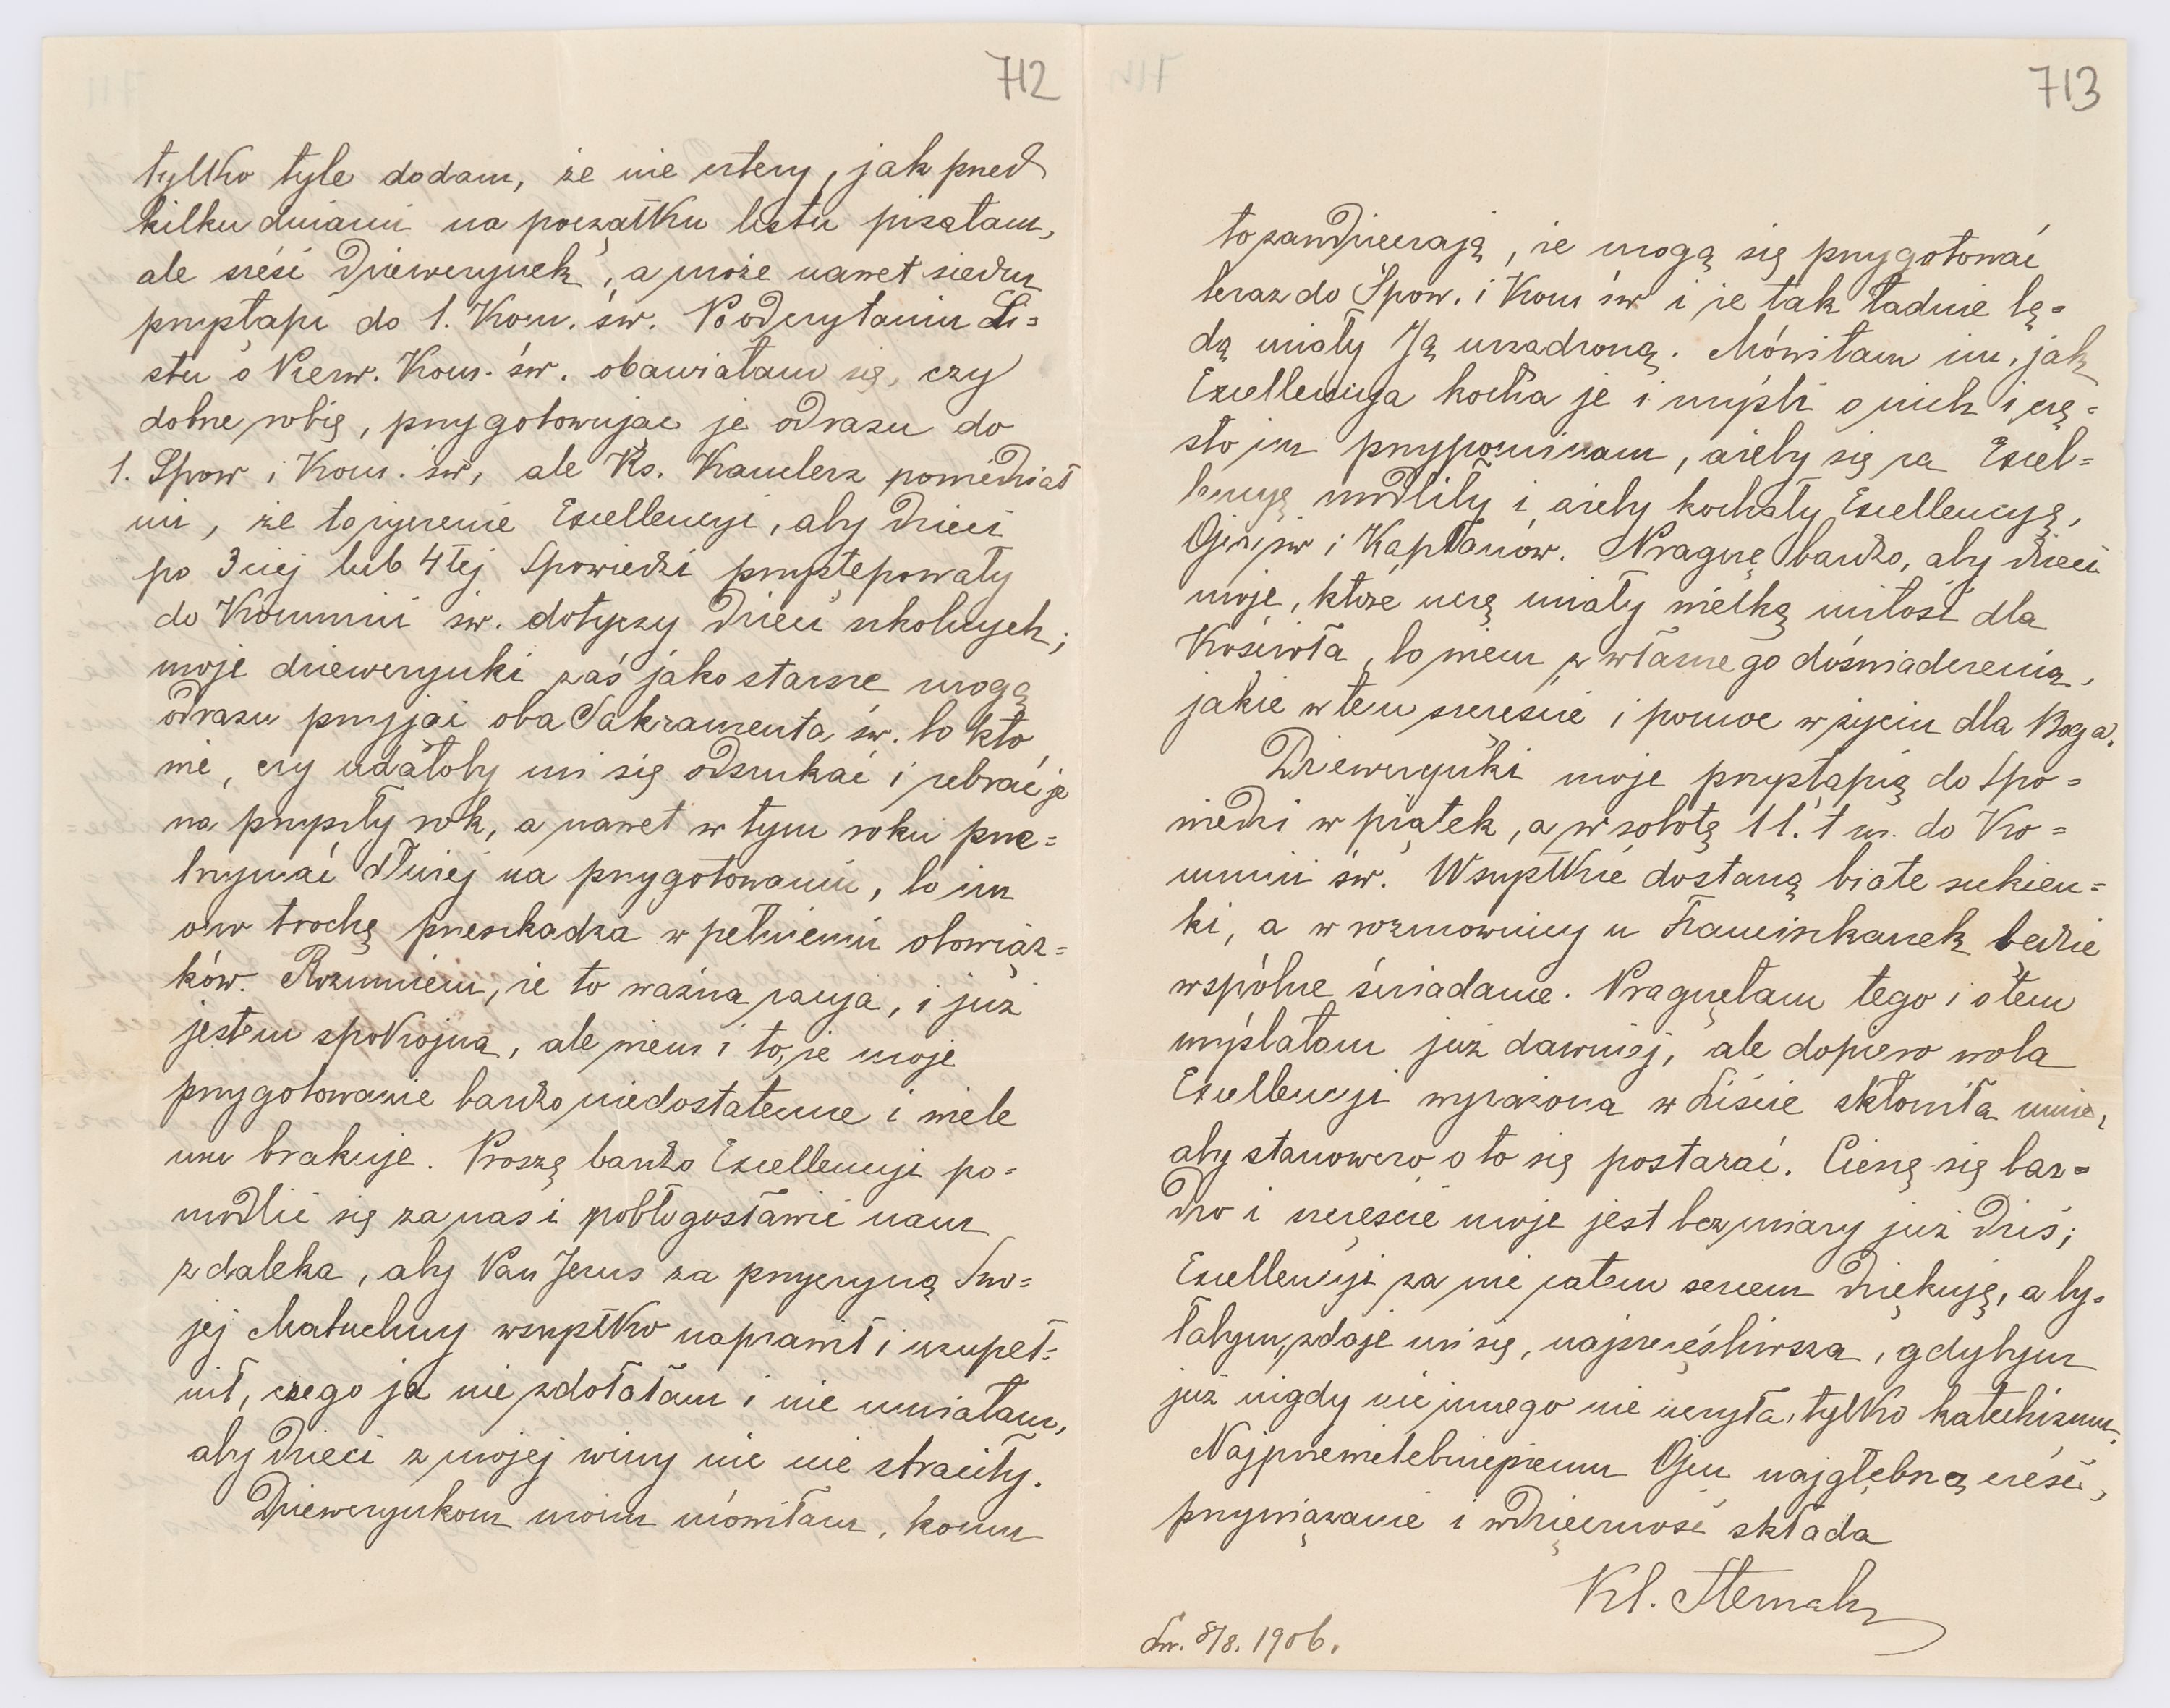 712
tylko tyle dodam, że nie cztery, jak przed
kilku dniami na początku listu pisałam,
ale sześć dziewczynek, a może nawet siedm
przystąpi do 1. Kom. św. Po odczytaniu Li=
stu o Pierw. Kom. św. obawiałam się, czy
dobrze robię, przygotowując je odrazu do
1. Spow i Kom. św, ale Ks. Kanclerz powiedział
mi, że to życzenie Excellencyi, aby dzieci
po 3ciej lub 4tej Spowiedzi przystępowały
do Kommunii św. dotyczy dzieci szkolnych;
moje dziewczynki zaś jako starsze mogą
odrazu przyjąć oba Sakramenta św. bo kto
wie, czy udałoby mi się odszukać i zebrać je
na przyszły rok, a nawet w tym roku prze=
trzymać dłużej na przygotowaniu, bo im
ono trochę przeszkadza w pełnieniu obowiąz=
ków. Rozumiem, że to ważna racya, i już
jestem spokojna, ale wiem i to, że moje
przygotowanie bardzo niedostateczne i wiele
mu brakuje. Proszę bardzo Excellencyi po=
modlić się za nas i pobłogosławić nam
z daleka, aby Pan Jezus za przyczyną Swo=
jej Matuchny wszystko naprawił i uzupeł=
nił, czego ja nie zdołałam i nie umiałam,
aby dzieci z mojej winy nic nie straciły.
Dziewczynkom moim mówiłam, komu
713
to zawdzięczają, że mogą się przygotować
teraz do Spow. i Kom św i że tak ładnie bę=
dą miały Ją urządzoną. Mówiłam im, jak
Excellencya kocha je i myśli o nich i czę=
sto im przypominam, ażeby się za Excel=
lencyę modliły i ażeby kochały Excellencyę,
Ojca św i Kapłanów. Pragnę bardzo, aby dzieci
moje, które uczę miały wielką miłość dla
Kościoła, bo wiem z własnego doświadczenia,
jakie w tem szczęście i pomoc w życiu dla Boga.
Dziewczynki moje przystąpią do Spo=
wiedzi w piątek, a w sobotę 11. t m. do Ko=
munii św. Wszystkie dostaną białe sukien=
ki, a w rozmownicy u Franciszkanek będzie
wspólne śniadanie. Pragnęłam tego i o tem
myślałam już dawniej, ale dopiero wola
Excellencyi wyrażona w Liście skłoniła mnie,
aby stanowczo o to się postarać. Cieszę się bar=
dzo i szczęście moje jest bez miary już dziś;
Excellencyi za nie całem sercem dziękuję, a by=
łabym, zdaje mi się, najszczęśliwsza, gdybym
już nigdy nic innego nie uczyła, tylko katechizmu.
Najprzewielebniejszemu Ojcu najgłębszą cześć,
przywiązanie i wdzięczność składa
Kl. Sternak
Lw. 8/8. 1906.